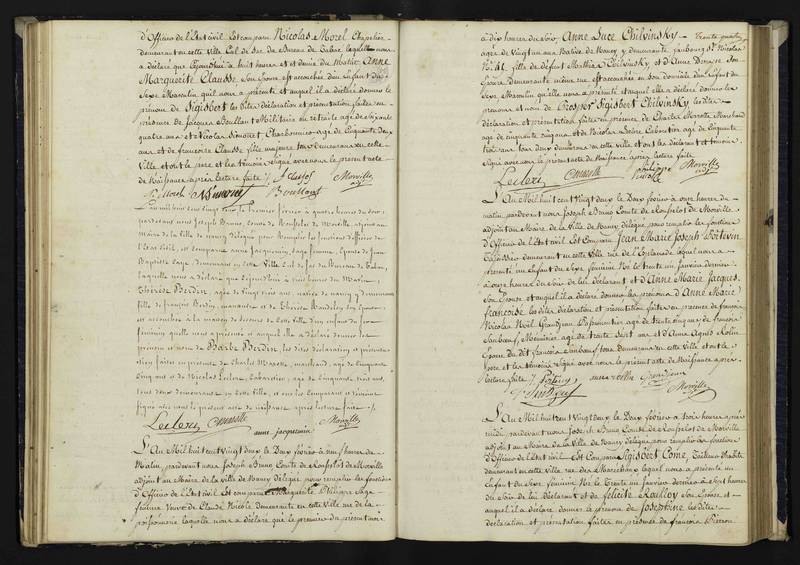 d'Officier de l'État civil Est comparu Nicolas Morel Chapelier
demeurant en cette Ville Cul de Sac du Bureau de Tabac lequel nous
a déclaré que à huit heures et demie du Matin Anne
Marguerite Clausse Son Épouse est accouchée d'un Enfant du
Sexe Masculin qu'il nous a présenté et auquel il a déclaré donner le
prénom de Sigisbert les dites déclaration et présentation faites en
présence de Jacques Militaire en retraite agé de Soixante
quatre ans et Nicolas Simonet Charbonnier agé de Cinquante deux
ans et de françoise Clausse fille majeure tous demeurans en cette
Ville et ont le pere et les témoins Signé avec nous le present acte
de Naissance après lecture faite
Morel Morville
L'an mil huit cent vingt deux le premier février à quatre heures du soir
pardevant nous Joseph Bruno, Comte de de Morville, adjoint au
Maire de la Ville de Nancy délégué pour Remplir les fonctions d'officier de
l'État Civil, est comparue anne Jacquemin, Sage femme, Épouse de Jean
Baptiste Sage, demeurant en cette Ville Cul de Sac du Bureau de Tabac,
laquelle nous a déclaré que à heures du Matin,
Thérèse Berdin, agée de Vingt trois ans native de nancy y demeurant
fille de françois Berdin, manœuvre et de Thérèse
est accouchée à la maison de secours de cette Ville d'un enfant du sexe
féminin qu'elle nous a présenté et auquel elle a déclaré donner les
prénom et nom de Barbe Berdin, les dites déclaration et présentation
faites en présence de Charles Marotte, marchand, agé de Cinquante
Cinq ans et de Nicolas Leclerc, Cabaretier, agé de Cinquante trois ans,
tous deux demeurant en cette Ville, et ont les Comparant et témoins
signé avec nous le present acte de naissance après lecture faite
Leclerc Marotte Morville
anne jacquemin
L'An Mil huit cent vingt deux le Deux février à neuf heures du
Matin, pardevant nous Joseph Bruno Comte de de Morville
adjoint au Maire de la ville de Nancy délégué pour remplir les fonctions
d'Officier de l'État civil Est comparue Marguerite Philippe Sage
femme Veuve de Claude Nicole demeurant en cette Ville rue de la
poissonnerie laquelle nous a déclaré que le premier du présent mois
à dix heures du Soir, Anne Luce Chilvinsky
agée de Vingt un ans Native de Nancy y demeurante faubourg St Nicolas
No 41 fille de défunt Mathias Chilvinsky et d'Anne Son
demeurante même rue est accouchée en Son domicile d'un Enfant du
Sexe Masculin qu'elle nous a présenté et auquel elle a déclaré donner les
prénoms et nom de Prosper Sigisbert Chilvinsky les dites
déclaration et présentation faites en présence de Charles Marotte Marchand
agé de cinquante cinq ans et de Nicolas Leclerc Cabaretier agé de Cinquante
trois ans tous deux demeurans en cette ville et ont les déclarant et témoins
Signé avec nous le present acte de Naissance après lecture faite
Leclerc Marotte Philippe Morville
L'An Mil huit cent Vingt deux le Deux février à onze heures du
matin pardevant nous Joseph Bruno Comte de de Morville
adjoint au Maire de la Ville de Nancy délégué pour remplir les fonctions
d'Officier de l'État civil Est Comparu Jean Marie Joseph Poitevin
demeurant en cette Ville rue de l'Esplanade lequel nous a
présenté un Enfant du Sexe féminin Né le trente un Janvier dernier
à onze heures du Soir de lui déclarant et d'Anne Marie Jacques
Son Épouse et auquel il a déclaré donner les prénoms d'Anne Marie
françoise les dites déclaration et présentation faites en présence de françois
Nicolas Noël Grandjean Passementier agé de trente cinq ans de françois
Menuisier agé de trente Sept ans et d'Anne Agnès
Épouse du dit françois tous demeurans en cette Ville et ont le
Pere et les témoins Signé avec nous le présent acte de Naissance après
lecture faite Poitevin Grandjean
Morville
L'An Mil huit cent vingt deux le Deux février à trois heures après
midi pardevant nous Joseph Bruno Comte de de Morville
adjoint au Maire de la Ville de Nancy délégué pour remplir les fonctions
d'Officier de l'État civil Est Comparu Sigisbert Come, Tailleur d'habits
demeurant en cette Ville rue des Maréchaux lequel nous a présenté un
Enfant du Sexe féminin Né le Trente un Janvier dernier à Sept heures
du Soir de lui déclarant et de felicité Son Épouse et
auquel il a déclaré donner le prénom de Josephine les dites
déclaration et présentation faites en présence de francois Pierron